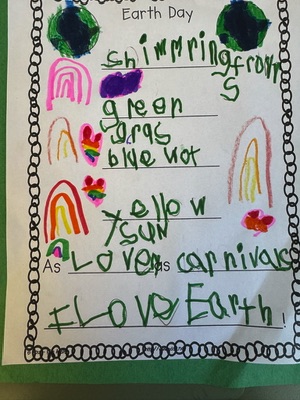 Earth Day
shimmring frowr
s
green
gras
blue wot
yellow
sun
As Lover as carnivac
I Love Earth!